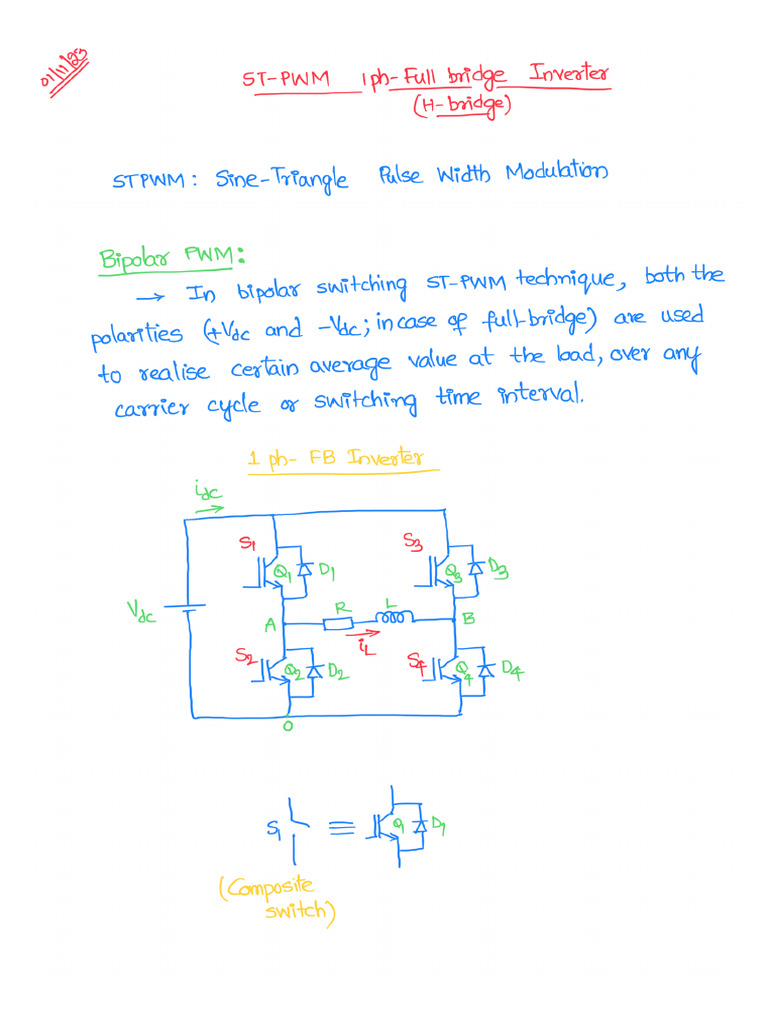 01/11/23
ST-PWM 1ph-Full bridge Inverter
(H-bridge)
STPWM: Sine-Triangle Pulse Width Modulation
Bipolar PWM:
→ In bipolar switching ST-PWM technique, both the
polarities (+Vdc and -Vdc; in case of full-bridge) are used
to realise certain average value at the load, over any
carrier cycle or switching time interval.
1 ph- FB Inverter
idc
S1 Q1 D1 S3 Q3 D3
Vdc
A R L B
iL
S2 Q2 D2 S4 Q4 D4
O
S1 ≡ Q1 D1
(Composite
switch)